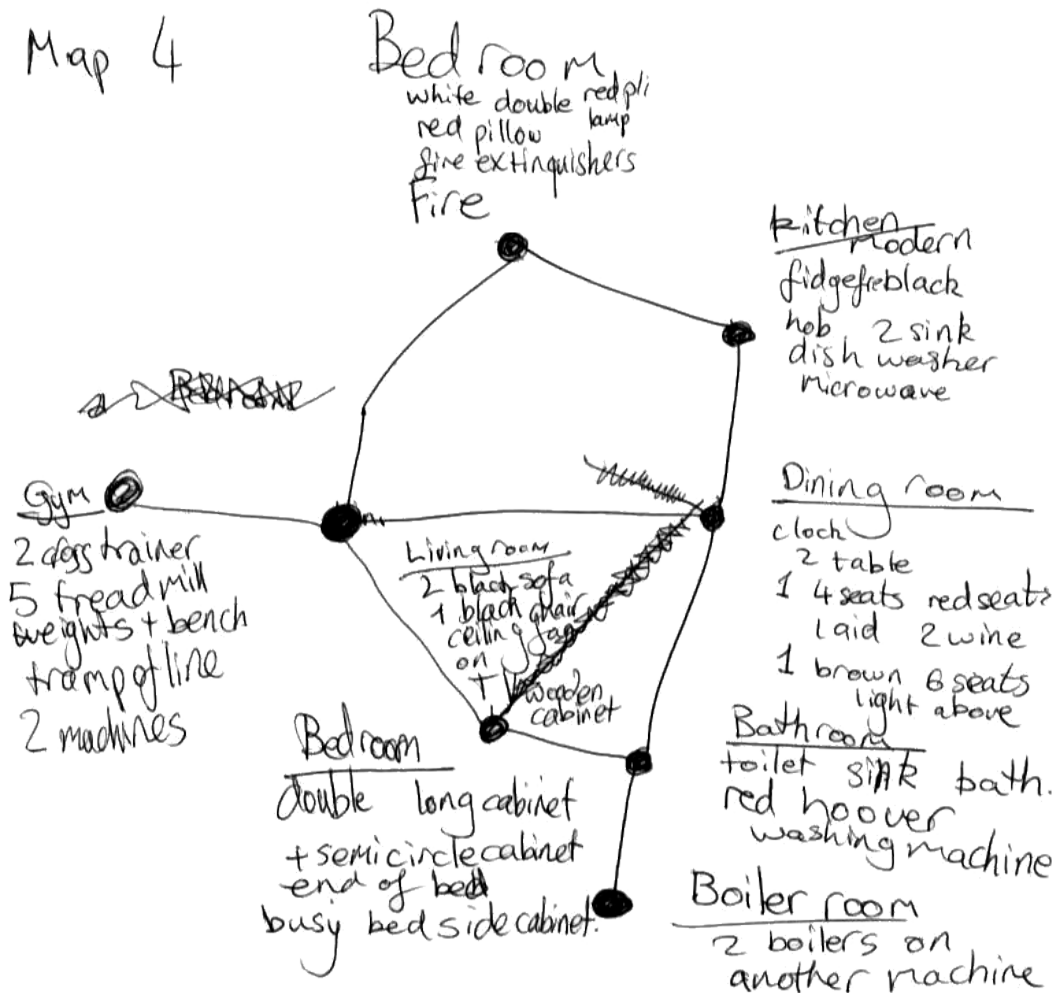 Map 4
Bedroom
white double redpli
red pillow lamp
fire extinguishers
Fire
kitchen
modern
fidgefreblack
hob 2 sink
dish washer
microwave
Gym
2 cross trainer
5 treadmill
weights + bench
trampoline
2 machines
Living room
2 black sofa
1 black chair
ceiling fan
on
+ wooden
cabinet
Dining room
clock
2 table
1 4 seats red seats
laid 2 wine
1 brown 6 seats
light above
Bedroom
double long cabinet
+ semicircle cabinet
end of bed
busy bed side cabinet.
Bathroom
toilet sink bath.
red hoover
washing machine
Boiler room
2 boilers on
another machine